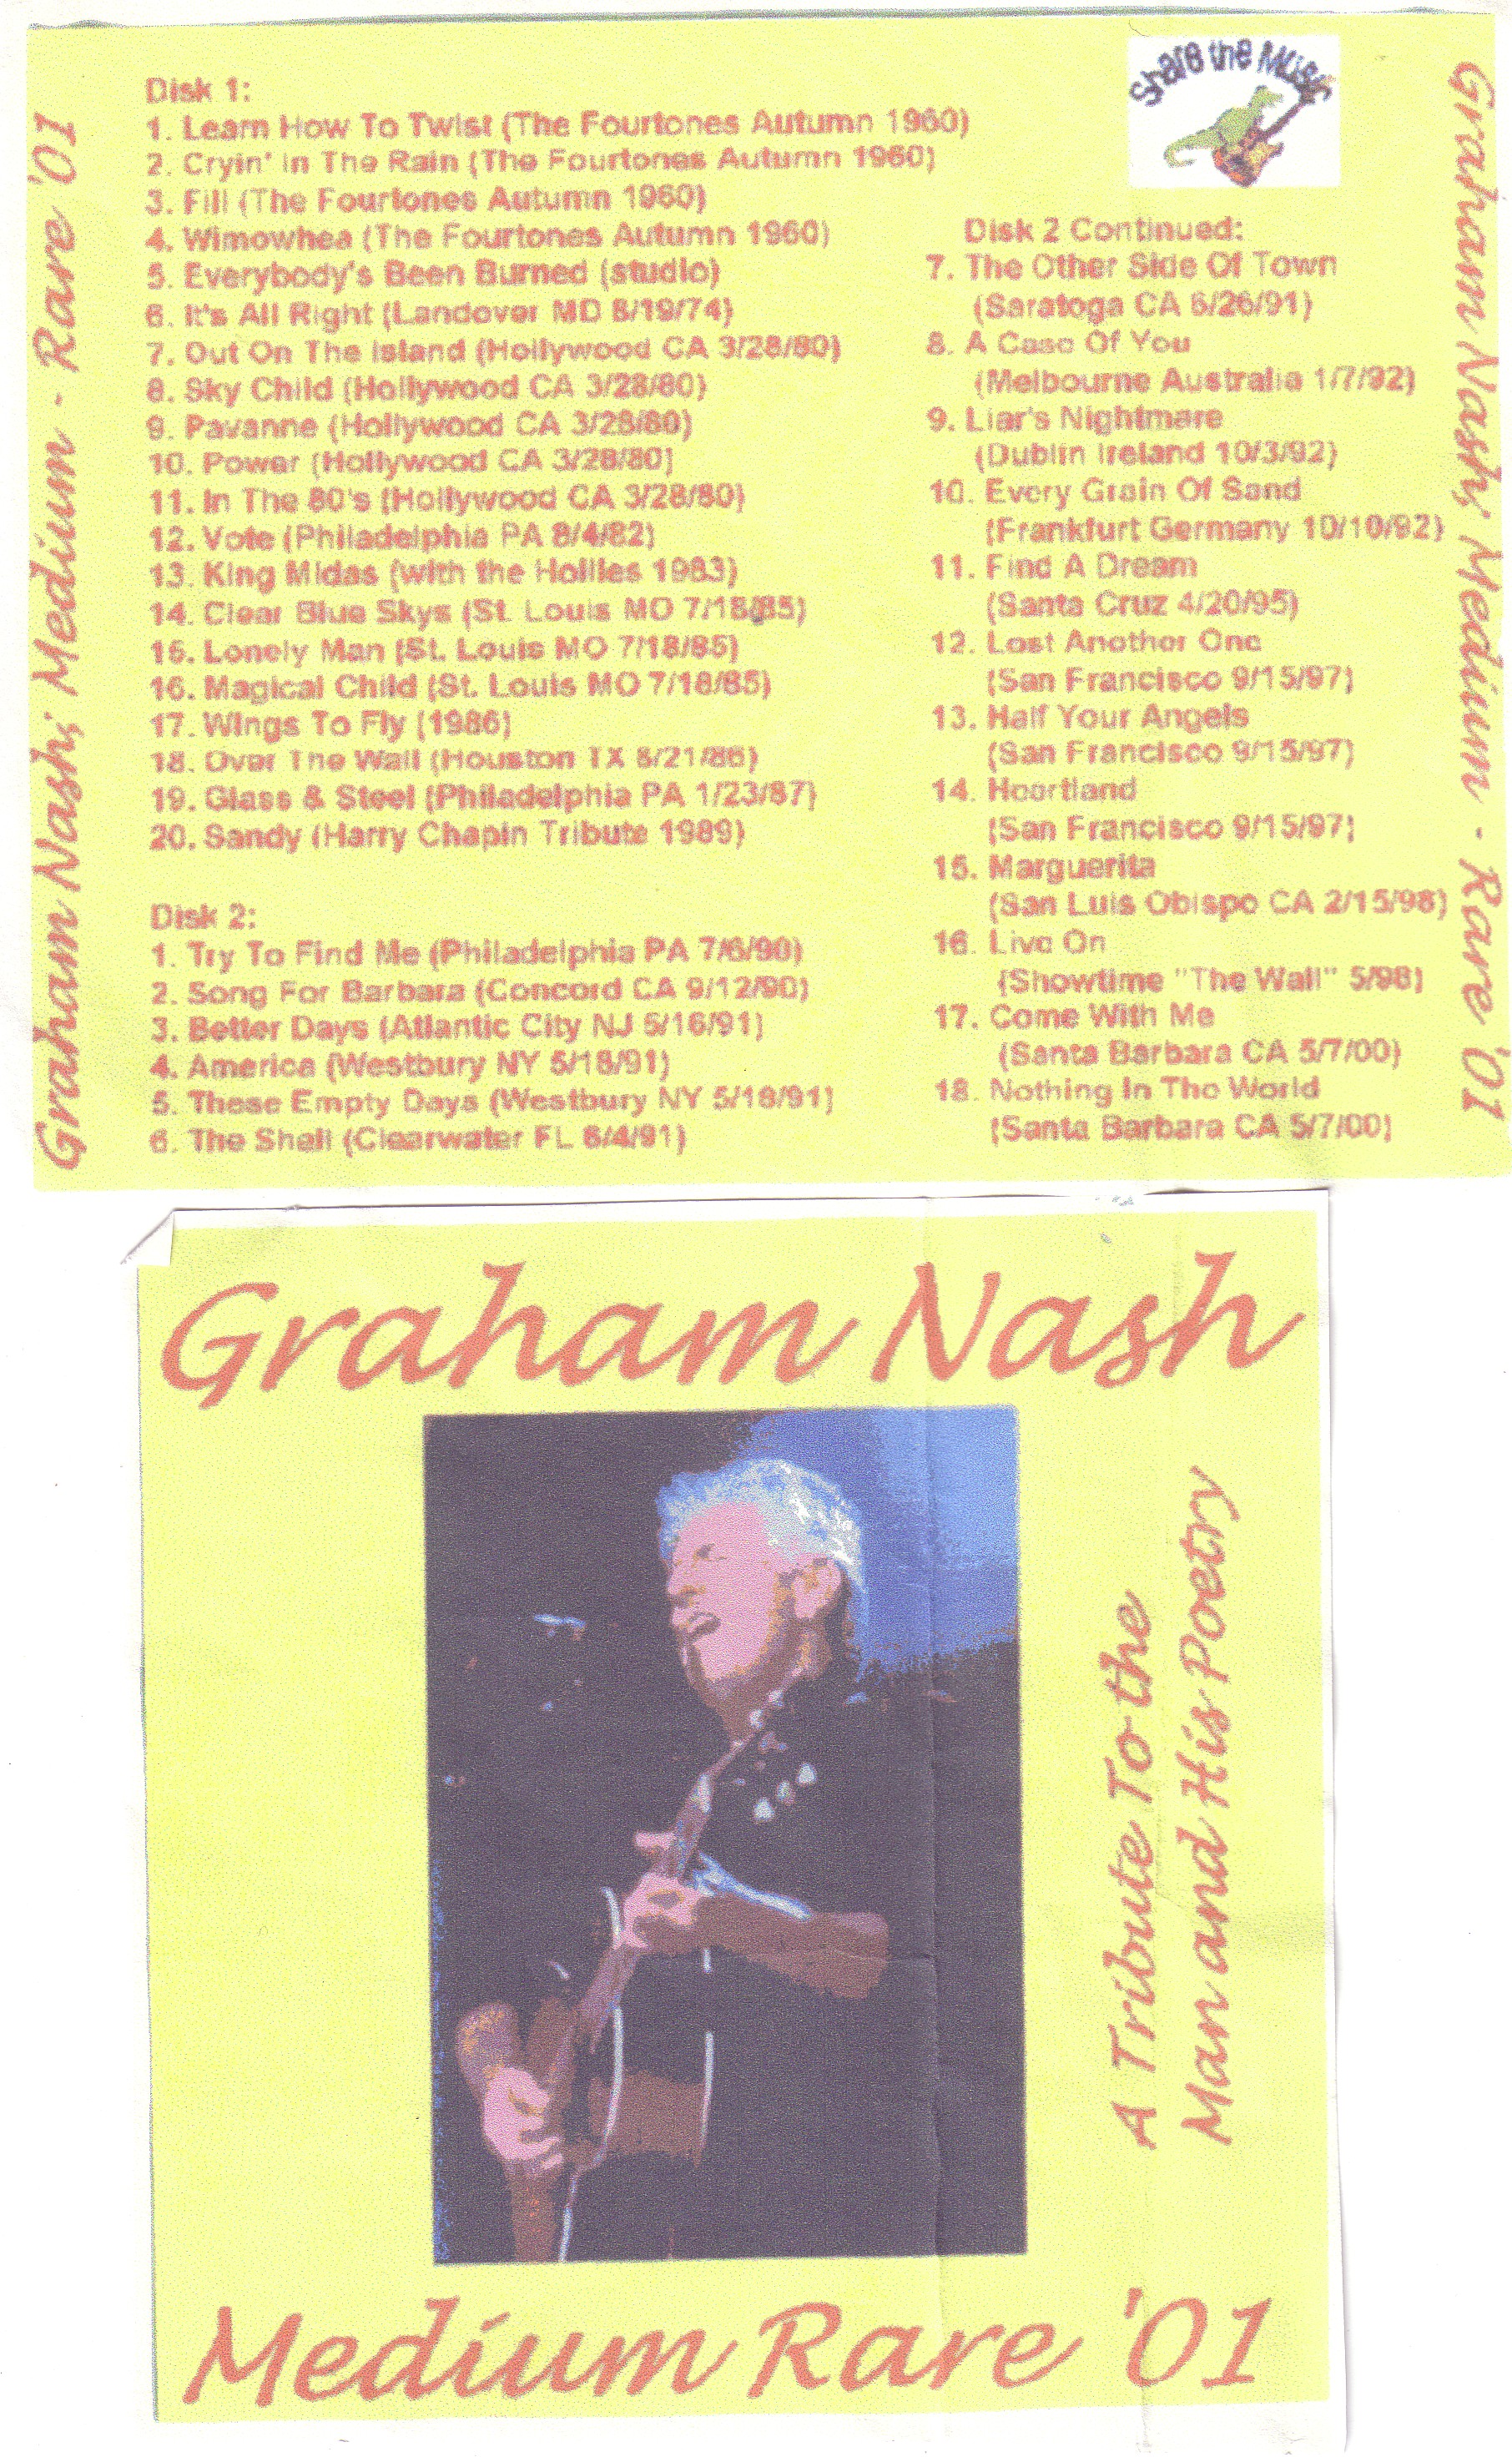 Graham Nash; Medium - Rare '01
Disk 1:
1. Learn How To Twist (The Fourtones Autumn 1960)
2. Cryin' In The Rain (The Fourtones Autumn 1960)
3. Fill (The Fourtones Autumn 1960)
4. Wimowhea (The Fourtones Autumn 1960)
5. Everybody's Been Burned (studio)
6. It's All Right (Landover MD 8/19/74)
7. Out On The Island (Hollywood CA 3/28/80)
8. Sky Child (Hollywood CA 3/28/80)
9. Pavanne (Hollywood CA 3/28/80)
10. Power (Hollywood CA 3/28/80)
11. In The 80's (Hollywood CA 3/28/80)
12. Vote (Philadelphia PA 8/4/82)
13. King Midas (with the Hollies 1983)
14. Clear Blue Skys (St. Louis MO 7/18/85)
15. Lonely Man (St. Louis MO 7/18/85)
16. Magical Child (St. Louis MO 7/18/85)
17. Wings To Fly (1986)
18. Over The Wall (Houston TX 8/21/86)
19. Glass & Steel (Philadelphia PA 1/23/87)
20. Sandy (Harry Chapin Tribute 1989)
Disk 2:
1. Try To Find Me (Philadelphia PA 7/6/90)
2. Song For Barbara (Concord CA 9/12/90)
3. Better Days (Atlantic City NJ 5/16/91)
4. America (Westbury NY 5/18/91)
5. These Empty Days (Westbury NY 5/18/91)
6. The Shell (Clearwater FL 6/4/91)
Share the Music
Disk 2 Continued:
7. The Other Side Of Town
(Saratoga CA 6/26/91)
8. A Case Of You
(Melbourne Australia 1/7/92)
9. Liar's Nightmare
(Dublin Ireland 10/3/92)
10. Every Grain Of Sand
(Frankfurt Germany 10/10/92)
11. Find A Dream
(Santa Cruz 4/20/95)
12. Lost Another One
(San Francisco 9/15/97)
13. Half Your Angels
(San Francisco 9/15/97)
14. Heartland
(San Francisco 9/15/97)
15. Marguerita
(San Luis Obispo CA 2/15/98)
16. Live On
(Showtime "The Wall" 5/98)
17. Come With Me
(Santa Barbara CA 5/7/00)
18. Nothing In The World
(Santa Barbara CA 5/7/00)
Graham Nash; Medium - Rare '01
Graham Nash
A Tribute To the
Man and His Poetry
Medium Rare '01